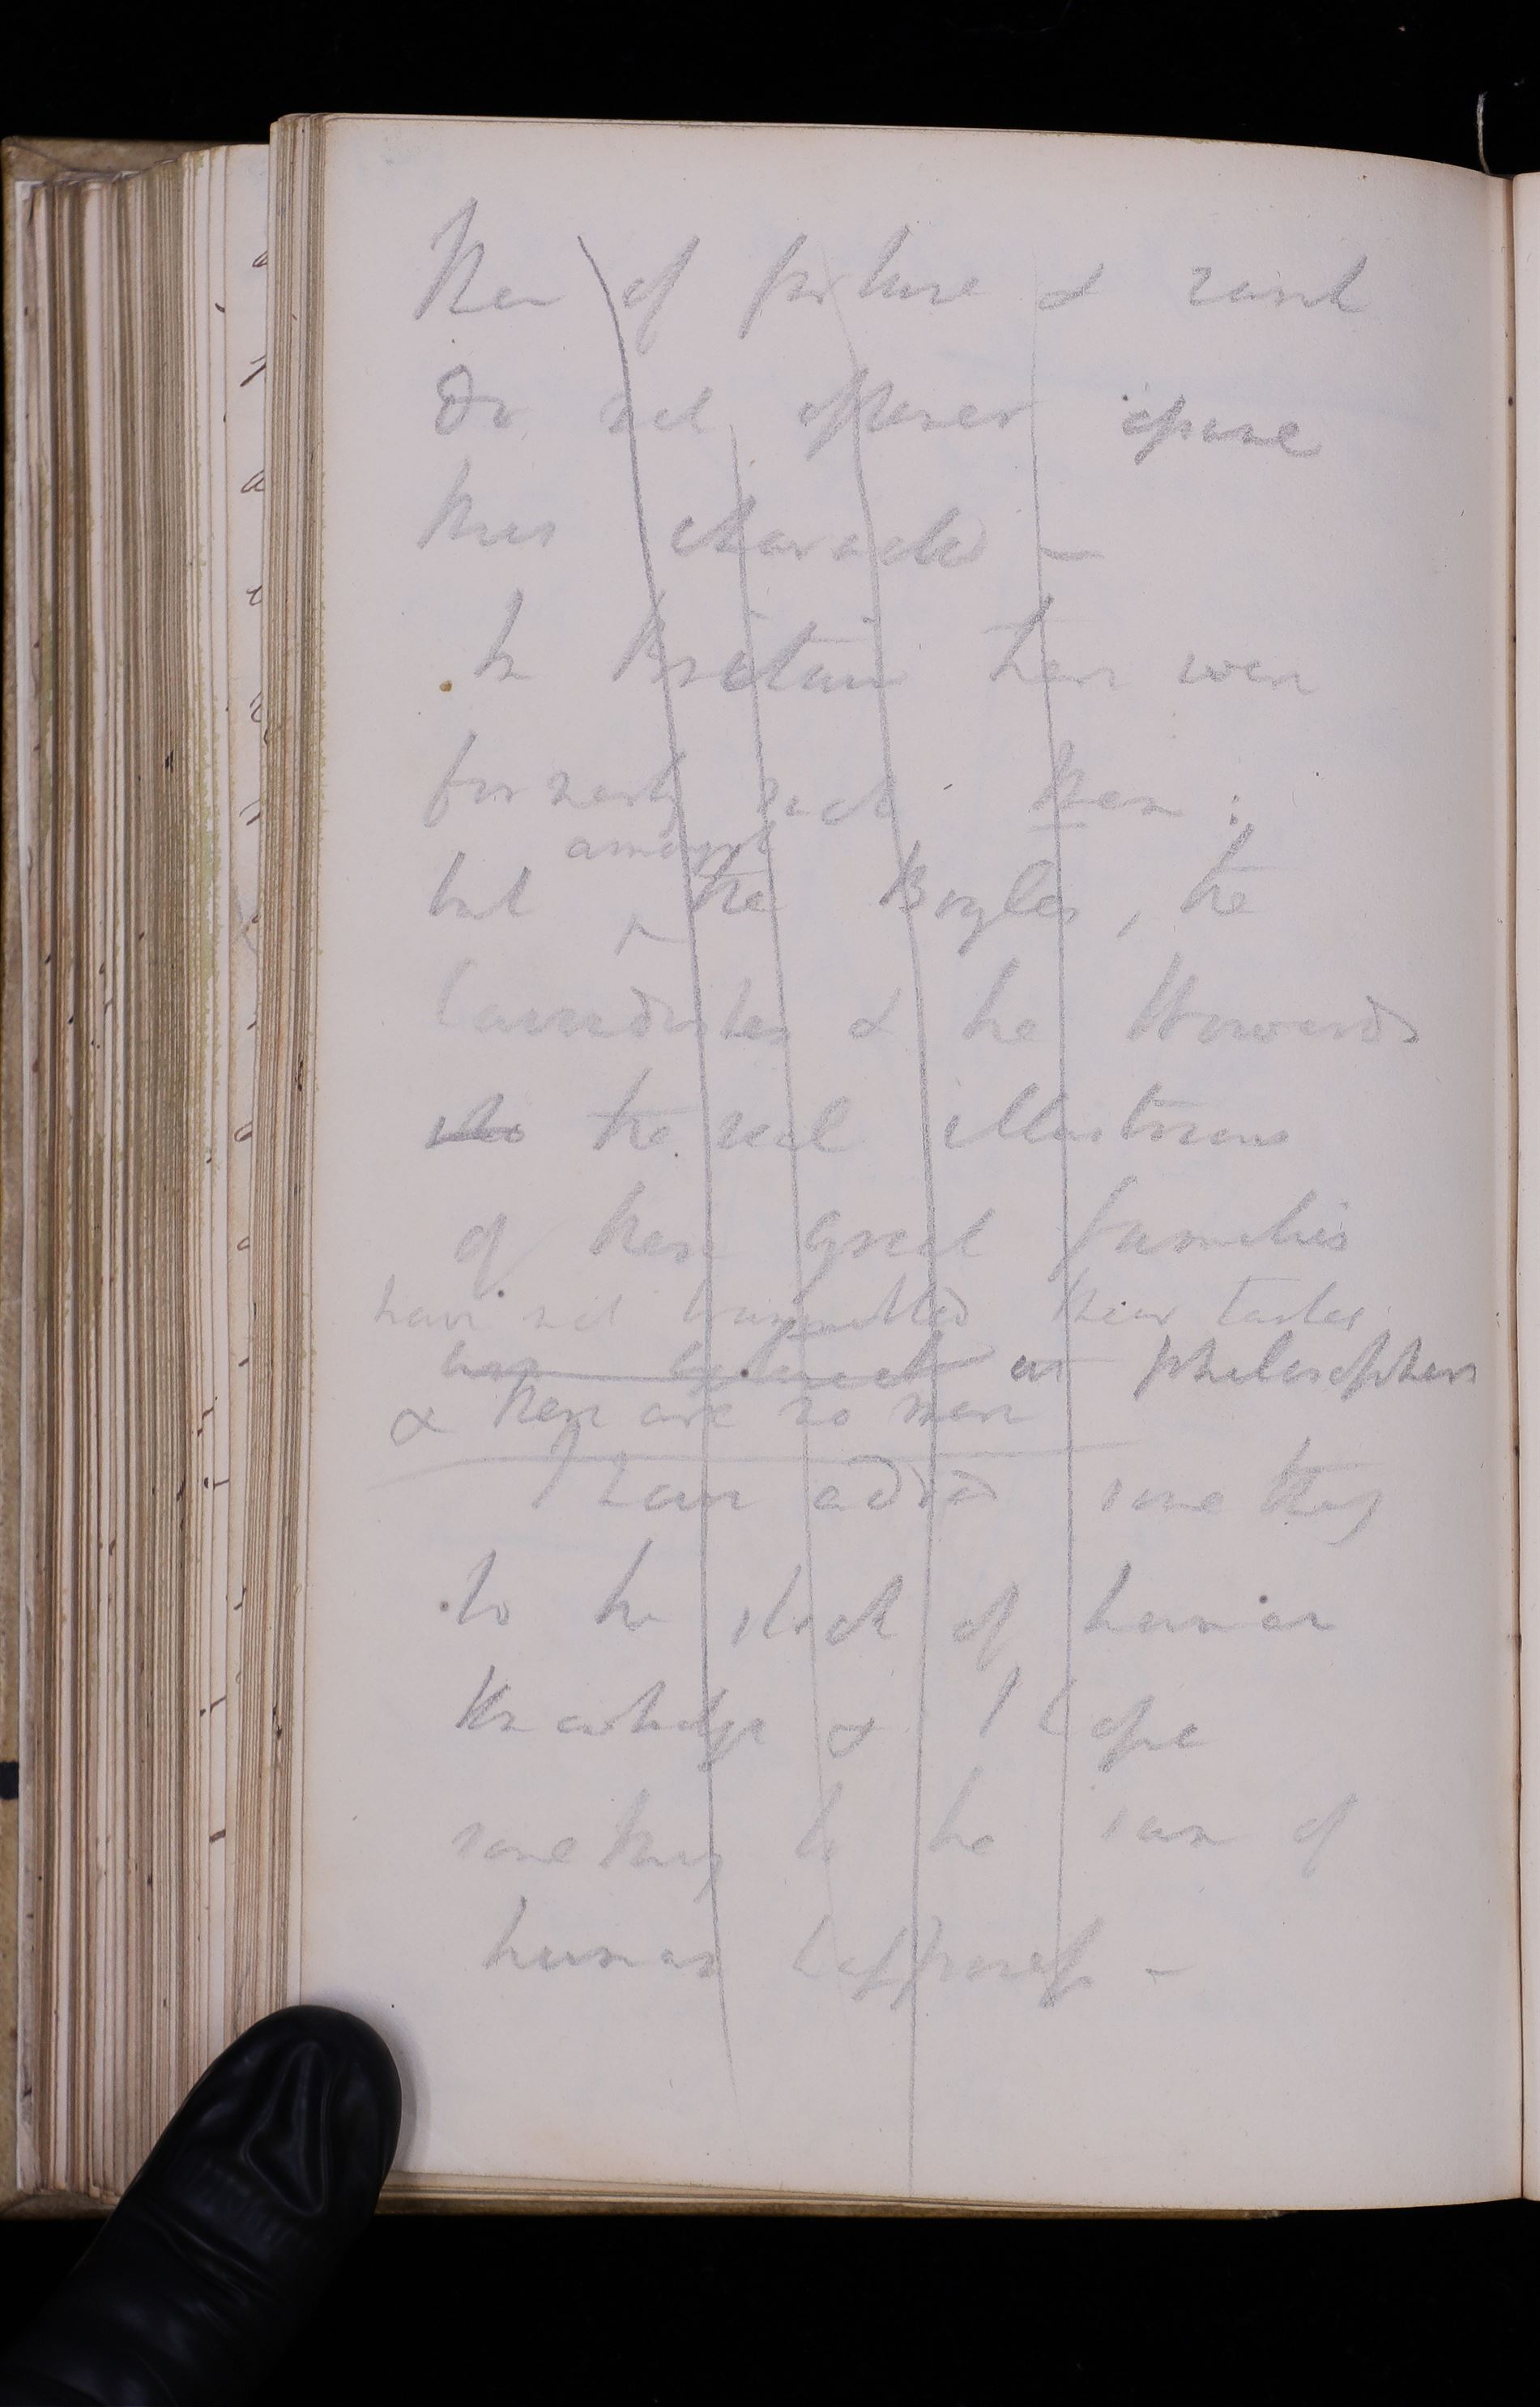 Men of fortune & rank
do not oftener
this character –
In Britain there were
formerly such Men :
amongst
but the Boyles, the
Cavendishes & the Howards
the real illustrious
of these great families
have not transmitted their tastes
as philosophers
& there are no more
I have added something
to the stock of human
Knowledge & I hope
something to the sum of
human happiness –